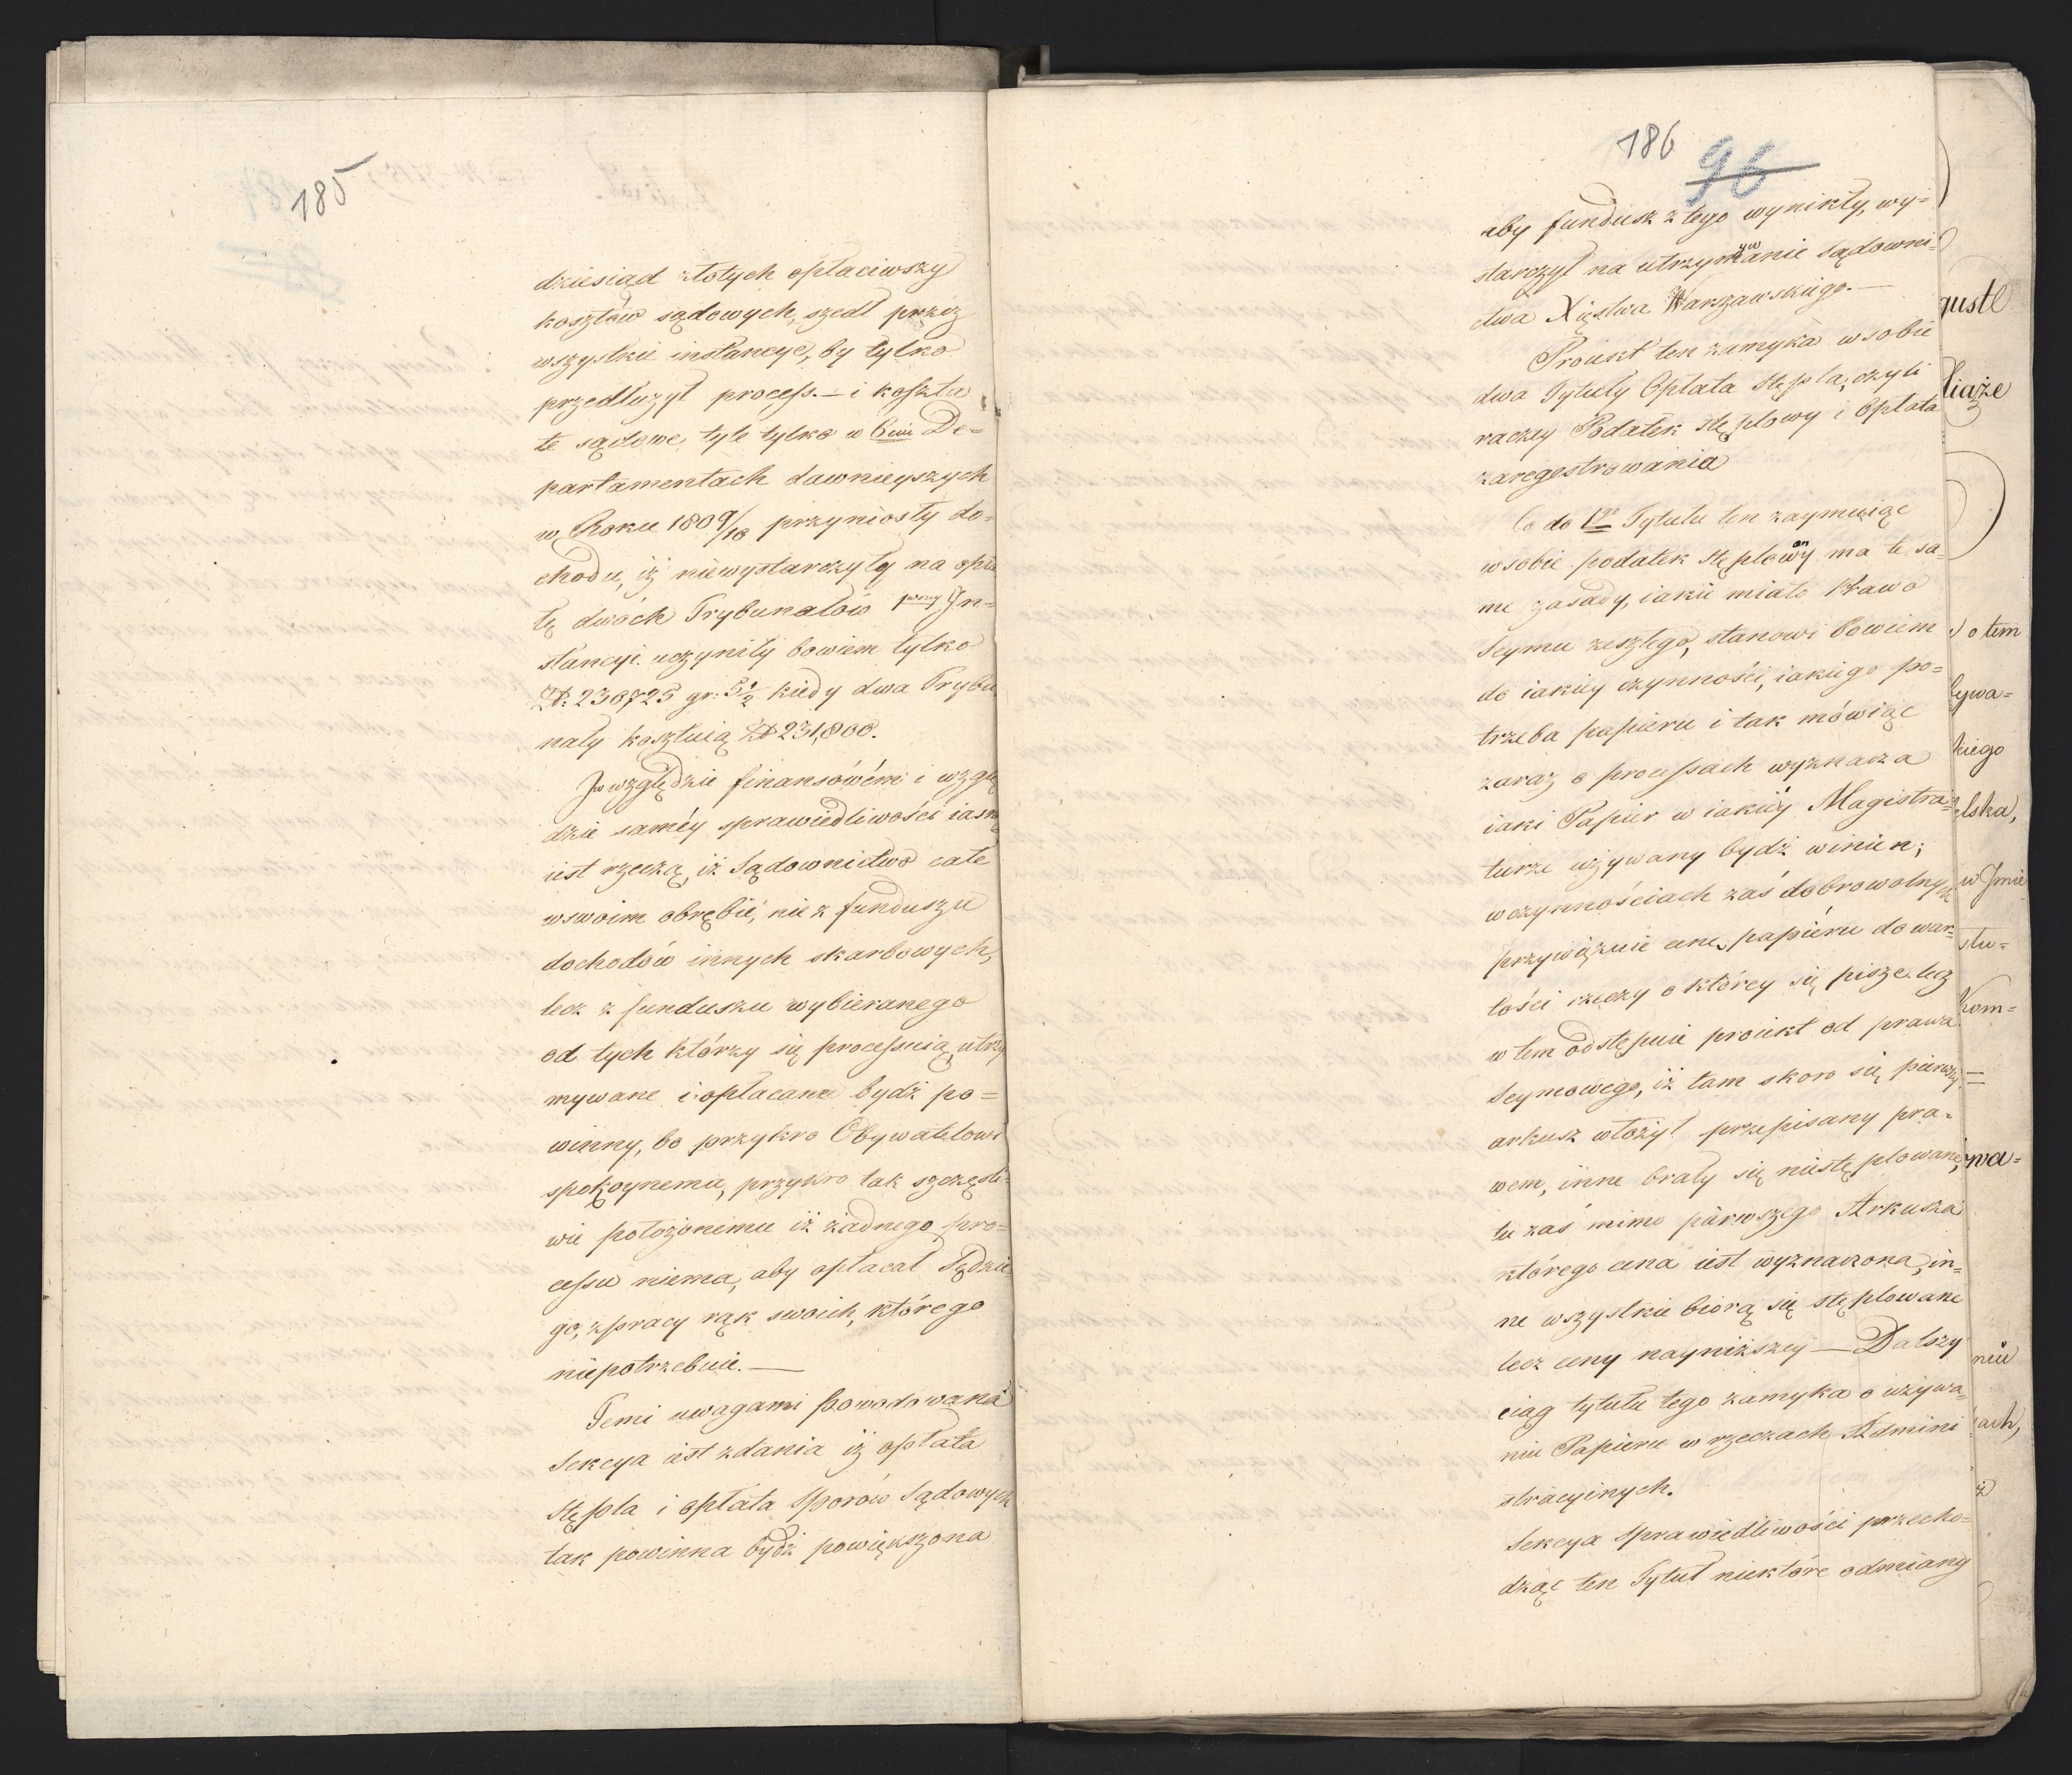 185
dziesiąd złotych opłaciwszy
kosztów sądowych, szedł przez
wszystkie instancye, by tylko
przedłużył process. — i koszta
te sądowe tyle tylko w 6ciu De=
partamentach dawnieyszych
w Roku 1809/10 przyniosły do=
chodu, iż niewystarczyły na opła
tę dwóch Trybunałów pwszey In=
stancyi. uczyniły bowiem tylko
Zł: 230725 gr: 5½ kiedy dwa Trybu
nały kosztuią Zł 231,800.
Jw względzie finansowém i wzglę
dzie saméy sprawiedliwości iasną
iest rzeczą, iż Sądownictwo całe
wswoim obrębie, nie z funduszu
dochodów innych skarbowych,
lecz z funduszu wybieranego
od tych którzy się processuią utrzy
mywane i opłacane bydź po=
winny, bo przykro Obywatelowi
spokoynemu, przykro tak szczęśli=
wie położonemu iż żadnego pro=
cessu niema, aby opłacał Sędzie
go, zpracy rąk swoich, którego
niepotrzebuie. —
Temi uwagami powodowana
Sekcya iest zdania iż opłata
Stępla i opłata Sporów Sądowych
tak powinna bydź powiększona
186
96
aby fundusz z tego wynikły, wy=
starczył na utrzymywanie sądowni=
ctwa Xięstwa Warszawskiego. —
Proiekt ten zamyka w sobie
dwa Tytuły Opłata Stępla, czyli
raczey Podatek stęplowy i Opłata
zaregestrowania
Co do 1go Tytułu ten zaymuiąc
w sobie podatek stęplowy on ma te sa=
me zasady, iakie miało Prawo
Seymu zeszłego, stanowi bowiem
do iakiey czynności, iakiego po=
trzeba papieru i tak mówiąc
zaraz o processach wyznacza
iaki Papier w iakiéy Magistra=
turze używany bydź winien;
w czynnościach zaś dobrowolnych
przywiązuie cenę papiéru do war=
tości rzeczy o którey się pisze. lecz
w tem odstępuie proiekt od prawa
Seymowego, iż tam skoro się pierwszy
arkusz włożył przepisany pra=
wem, inne brały się niestęplowane,
tu zaś mimo pierwszego Arkusza
którego cena iest wyznaczona, in=
ne wszystkie biorą się stęplowane
lecz ceny nayniższey — Dalszy
ciąg tytułu tego zamyka o używa=
niu Papieru w rzeczach Admini
stracyinych.
Sekcya Sprawiedliwości przecho=
dząc ten Tytuł niektóre odmiany